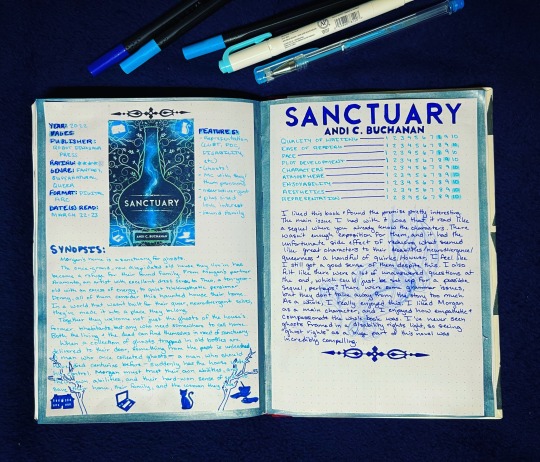 YEAR: 2022
PAGES:
PUBLISHER:
ROBOT DINOSAUR
PRESS
RATING:
GENRE: FANTASY,
SUPERNATURAL,
QUEER
FORMAT: DIGITAL
ARC
DATE(S) READ:
MARCH 22-23
SANCTUARY
ANDI C. BUCHANAN
FEATURES:
- Representation
(LGBT, POC,
DISABILITY,
etc)
- Ghosts
- found family
SYNOPSIS:
Morgan's home is a sanctuary for ghosts.
The once-grand, now dilapidated house they live in has
become a refuge for their found family: from Morgan's partner
Araminta, an artist with excellent dress sense, to Theo, a ten-year-
old with an excess of energy, to quiet telekinetic pensioner
Denny, all of them consider this haunted house their home.
In a world that wasn't built for their queer, neurodivergent selves,
they've made it into a place they belong.
Together they welcome not just the ghosts of the house's
former inhabitants, but any who need somewhere to call home.
Both the living and the dead can find themselves in need of sanctuary.
When a collection of ghosts trapped in old bottles are
delivered to their door, something from the past is unleashed.
A man who once collected ghosts - a man who should
have died centuries before - suddenly has the house
Morgan must trust their own abilities,
and their hard-won sense of
home, their family, and the woman they
SANCTUARY
ANDI C. BUCHANAN
QUALITY OF WRITING 1 2 3 4 5 6 7 8 9 10
EASE OF READING 1 2 3 4 5 6 7 8 9 10
PACE 1 2 3 4 5 6 7 8 9 10
PLOT DEVELOPMENT 1 2 3 4 5 6 7 8 9 10
CHARACTERS 1 2 3 4 5 6 7 8 9 10
ATMOSPHERE 1 2 3 4 5 6 7 8 9 10
ENJOYABILITY 1 2 3 4 5 6 7 8 9 10
AESTHETICS 1 2 3 4 5 6 7 8 9 10
REPRESENTATION 1 2 3 4 5 6 7 8 9 10
I liked this book & found the premise pretty interesting.
The main issue I had with it was that it read like
a sequel where you already know the characters. There
wasn't enough exposition for them, and it had the
unfortunate side effect of reducing what seemed
like great characters to their disabilities/neurodivergence/
queerness & a handful of quirks. However, I feel like
I still got a good sense of them despite this. I also
felt like there were a lot of unanswered questions at
the end, which could just be set up for a possible
sequel, perhaps? There were some grammar issues,
but they don't take away from the story too much.
As a whole, I really enjoyed this. I liked Morgan
as a main character, and I enjoyed how empathetic &
compassionate the whole book was. I've never seen
ghosts framed in a disability rights light, so seeing
"ghost rights" as a huge part of this novel was
incredibly compelling.